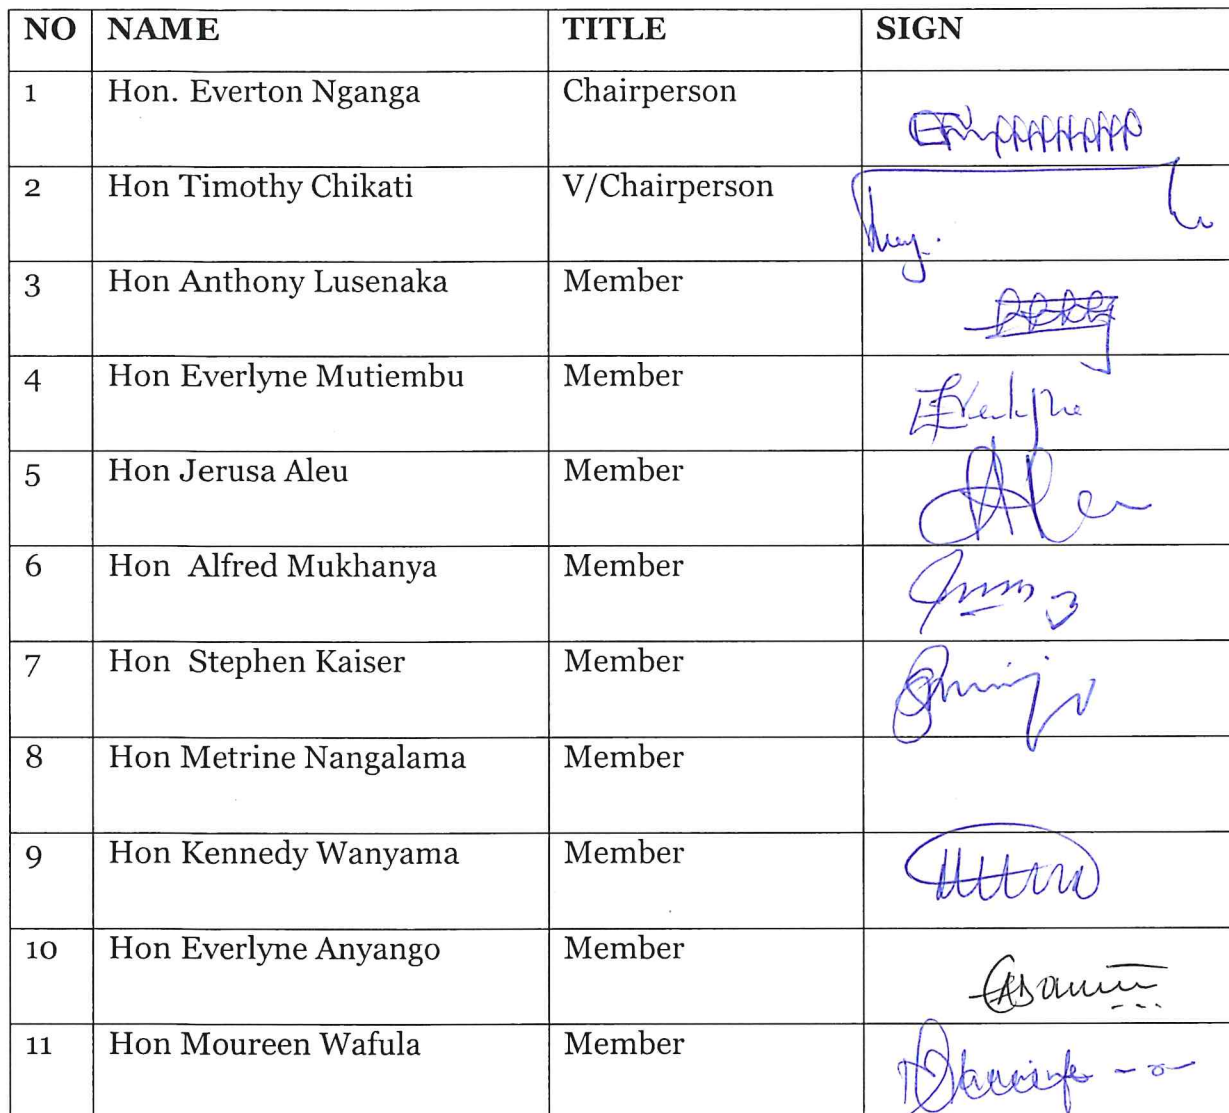 NO NAME TITLE SIGN
1 Hon. Everton Nganga Chairperson
2 Hon Timothy Chikati V/Chairperson
3 Hon Anthony Lusenaka Member
4 Hon Everlyne Mutiembu Member Everlyne
5 Hon Jerusa Aleu Member
6 Hon Alfred Mukhanya Member
7 Hon Stephen Kaiser Member
8 Hon Metrine Nangalama Member
9 Hon Kennedy Wanyama Member
10 Hon Everlyne Anyango Member
11 Hon Moureen Wafula Member